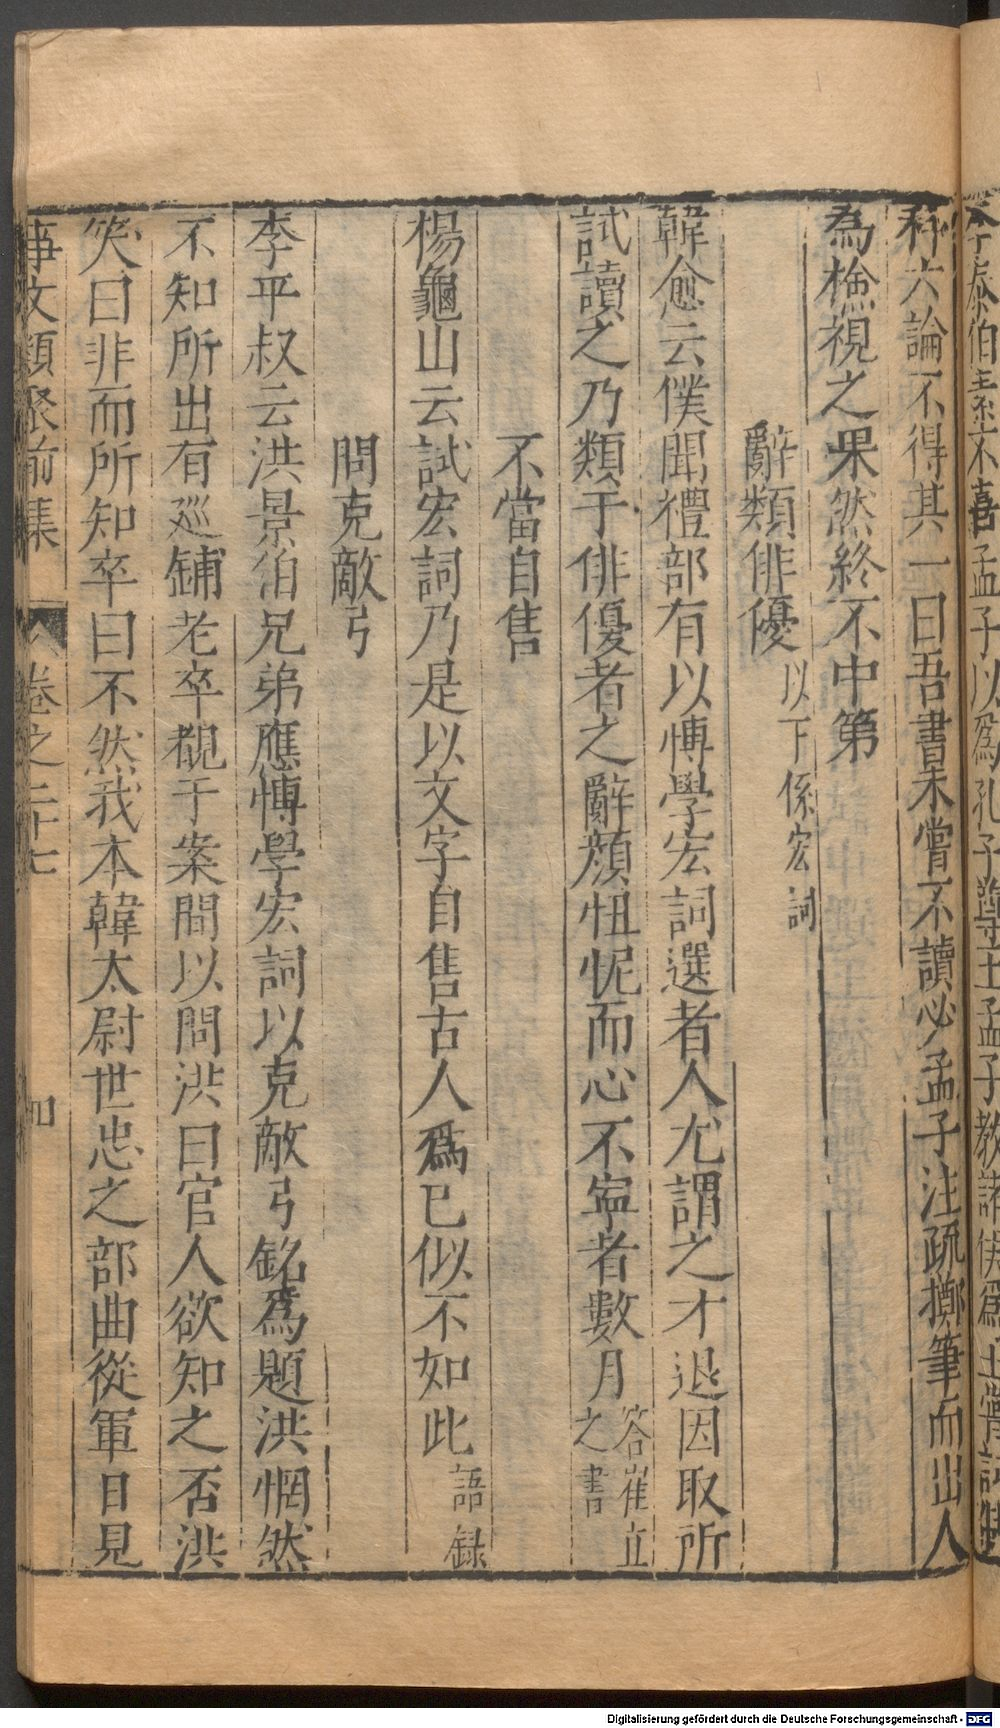 李泰伯素不喜孟子以爲孔子尊王孟子教諸侯爲王嘗試制
科六論不得其一曰吾書未嘗不讀必孟子注疏擲筆而出人
為檢視之果然終不中第
辭類俳優 以下係宏詞
韓愈云僕聞禮部有以愽學宏詞選者人尤謂之才退因取所
試讀之乃類于俳優者之辭顔忸怩而心不寧者數月 答崔立之書
不當自售
楊龜山云試宏詞乃是以文字自售古人爲已似不如此 語録
問克敵弓
李平叔云洪景伯兄弟應愽學宏詞以克敵弓銘爲題洪惘然
不知所出有廵鋪老卒覩于案間以問洪曰官人欲知之否洪
笑曰非而所知卒曰不然我本韓太尉世忠之部曲從軍日見
事文類聚前集 卷之二十七
Digitalisierung gefördert durch die Deutsche Forschungsgemeinschaft - DFG